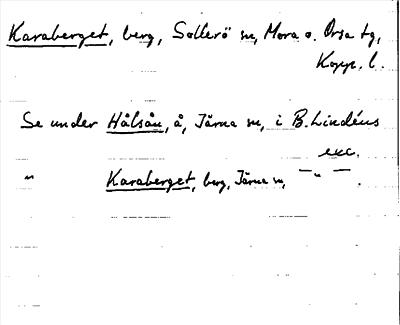 Karaberget, berg, Sollerö sn, Mora o. Orsa tg,
Kopp. l.
Se under Hålsån, å, Järna sn, i B. Lindéns
exc.
" Karaberget, berg, Järna sn, — " — .